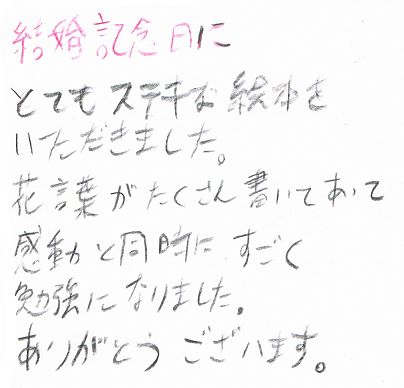 結婚記念日に
とてもステキな絵本を
いただきました。
花言葉がたくさん書いてあって
感動と同時にすごく
勉強になりました。
ありがとうございます。